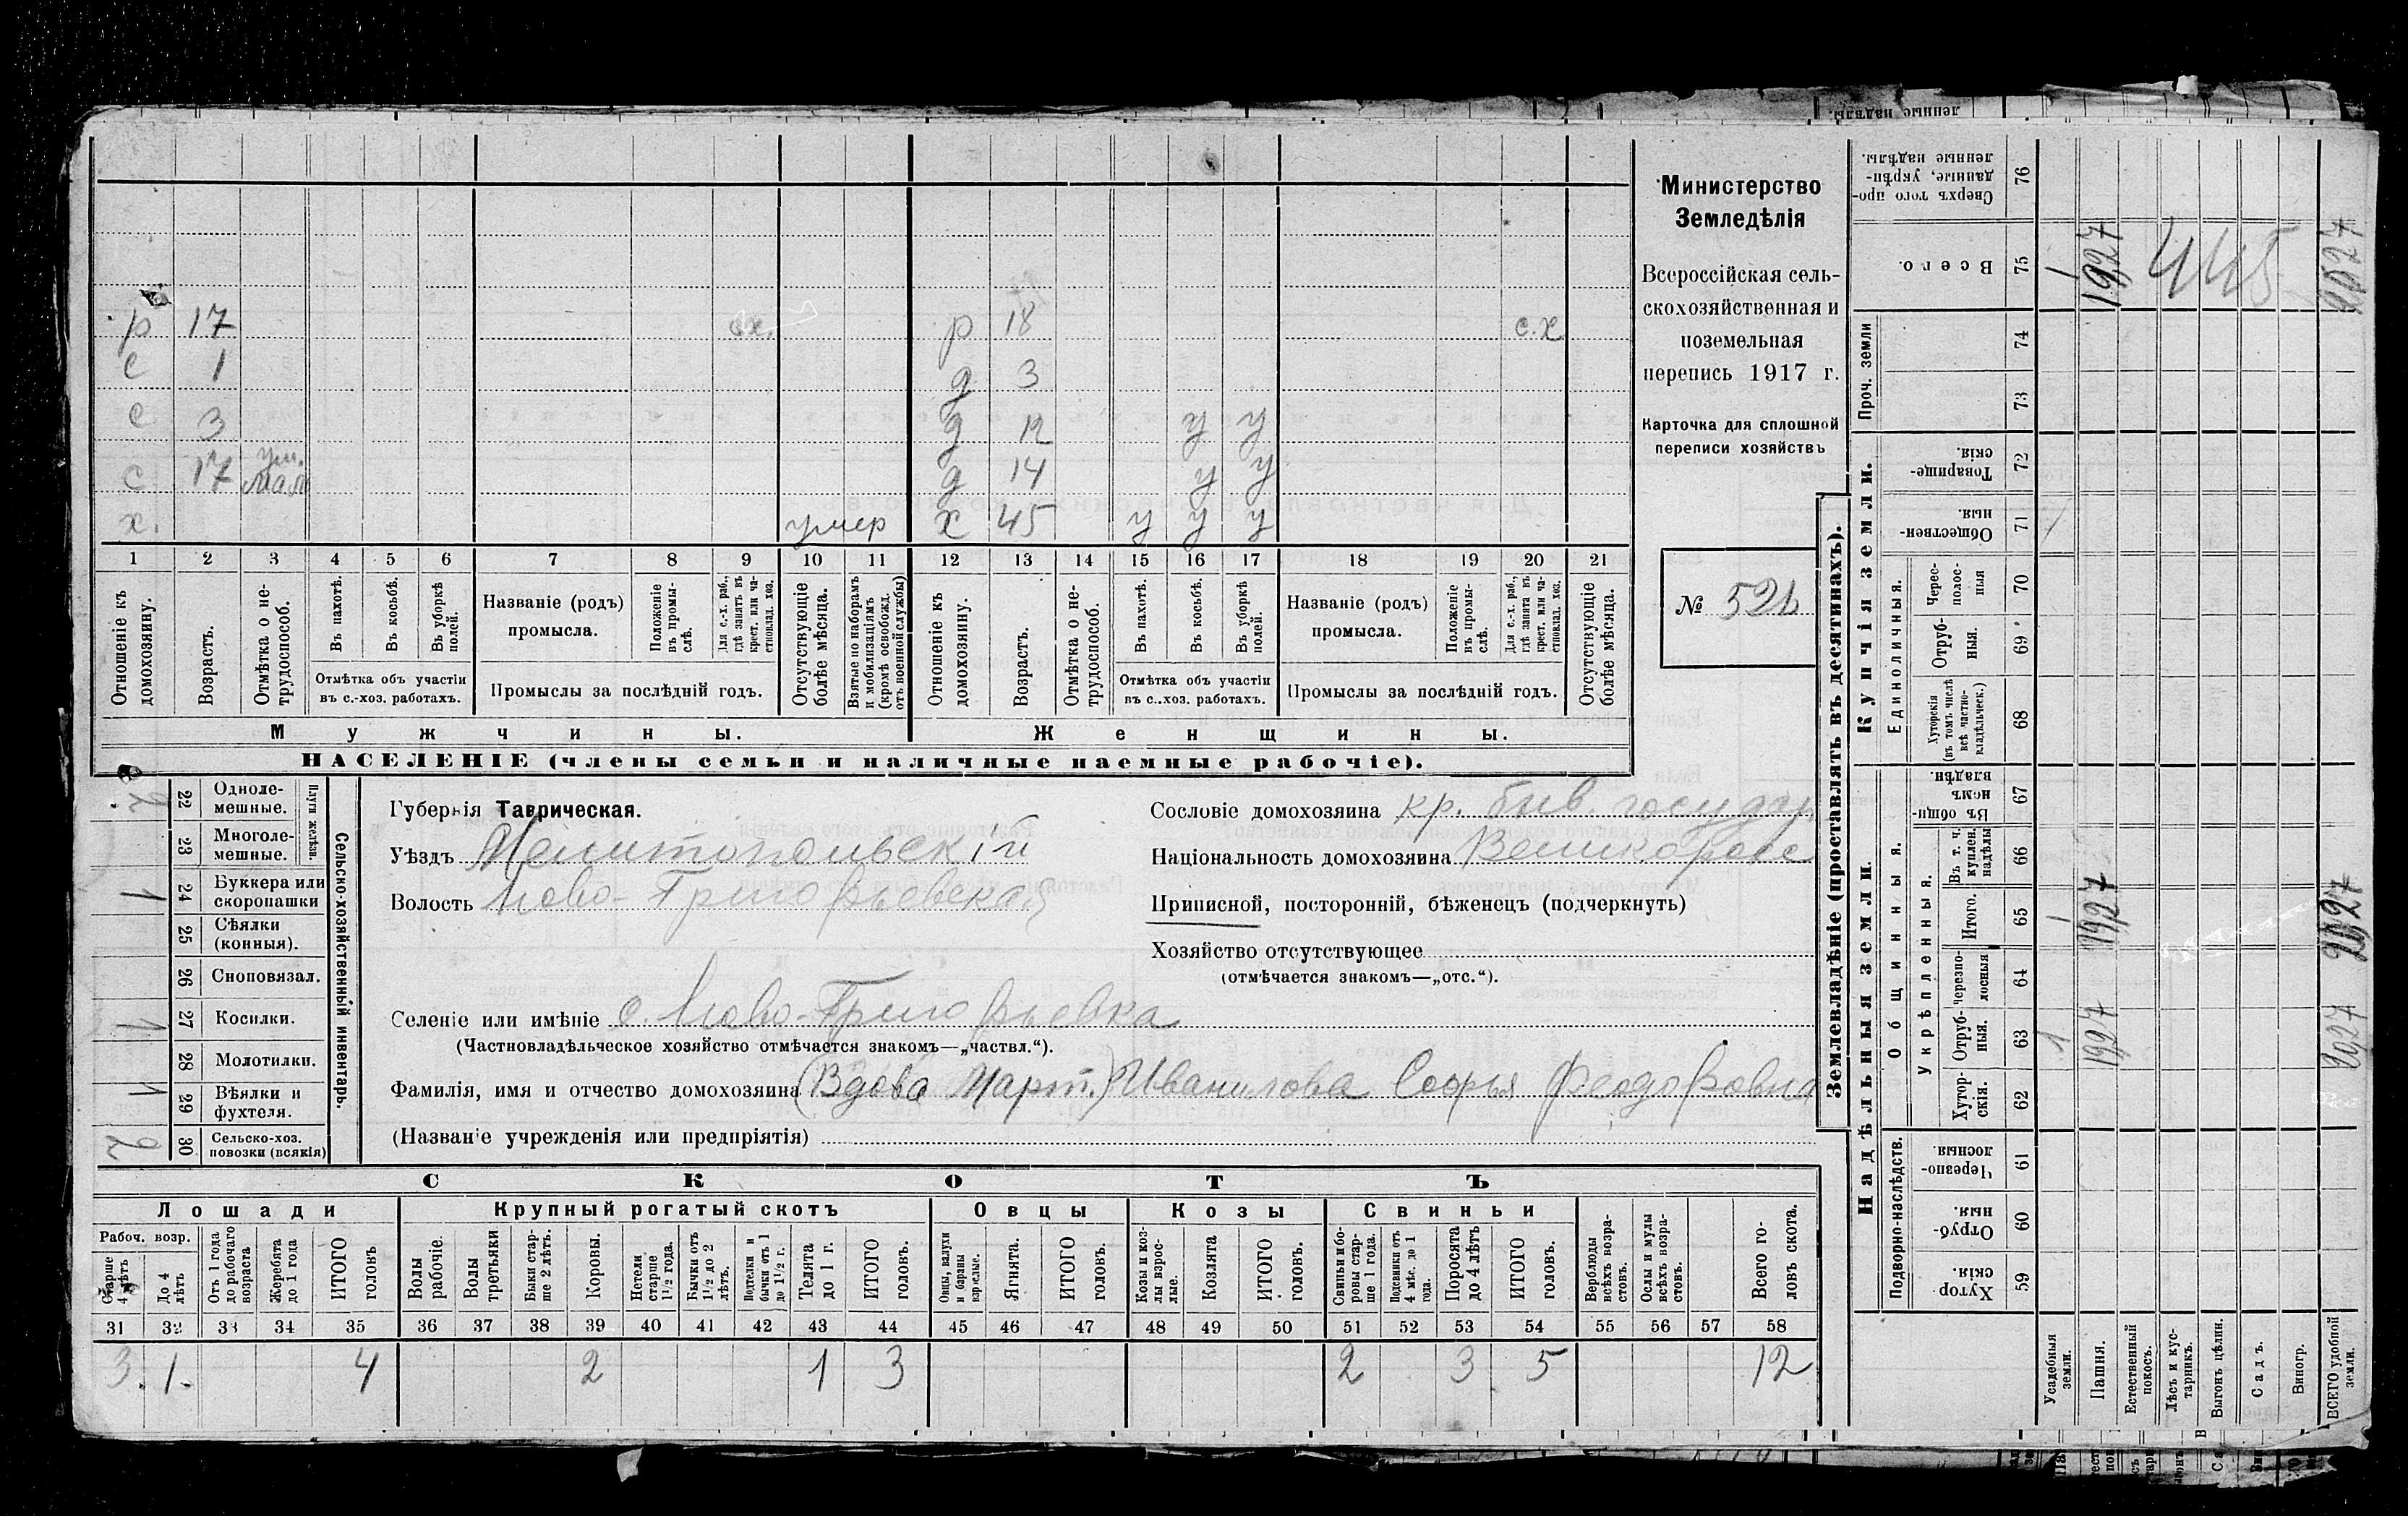 Министерство
Земледѣлія
Всероссійская сель-
скохозяйственная и
поземельная
перепись 1917 г.
Карточка для сплошной
переписи хозяйствъ
№ 521
р 17 сх. р 18 с.х
с 1 д 3
с 3 д 12 у у
с 17 ум. мал д 14 у у
х. умер х 45 у у у
1 2 3 4 5 6 7 8 9 10 11 12 13 14 15 16 17 18 19 20 21
Отношеніе къ домохозяину.
Возрастъ.
Отмѣтка о не-трудоспособ.
Въ пахотѣ.
Въ косьбѣ.
Въ уборкѣ полей.
Отмѣтка объ участіи
въ с.-хоз. работахъ.
Названіе (родъ)
промысла.
Положеніе въ промы-слѣ.
Для с.-х. раб., гдѣ занятъ въ крест. или ча-стновлад. хоз.
Промыслы за послѣдній годъ.
Отсутствующіе болѣе мѣсяца.
Взятые по наборамъ и мобилизаціямъ (кромѣ освобожд. отъ военной службы)
Отношеніе къ домохозяину.
Возрастъ.
Отмѣтка о не-трудоспособ.
Въ пахотѣ.
Въ косьбѣ.
Въ уборкѣ полей.
Отмѣтка объ участіи
въ с.-хоз. работахъ.
Названіе (родъ)
промысла.
Положеніе въ промы-слѣ.
Для с.-х. раб., гдѣ занята въ крест. или ча-стновлад. хоз.
Промыслы за послѣдній годъ.
Отсутствующіе болѣе мѣсяца.
Мужчины. Женщины.
НАСЕЛЕНІЕ (члены семьи и наличные наемные рабочіе).
Сельско-хозяйственный инвентарь.
Плуги желѣзн.
22 Одноле-мешные.
23 Многоле-мешные.
1 24 Буккера или скоропашки
25 Сѣялки (конныя).
26 Сноповязал.
1 27 Косилки.
28 Молотилки.
1 29 Вѣялки и фухтеля.
2 30 Сельско-хоз. повозки (всякія)
Губернія Таврическая.
Уѣздъ Мелитопольскій
Волость Ново-Григорьевская
Селеніе или имѣніе с. Ново-Григорьевка
(Частновладѣльческое хозяйство отмѣчается знакомъ—„частвл.“).
Фамилія, имя и отчество домохозяина (Вдова Март.) Иванилова Софья Феодоровна
(Названіе учрежденія или предпріятія)
Сословіе домохозяина кр. быв. государ.
Національность домохозяина Великоросс
Приписной, посторонній, бѣженецъ (подчеркнуть)
Хозяйство отсутствующее
(отмѣчается знакомъ—„отс.“).
СКОТЪ
Лошади Крупный рогатый скотъ Овцы Козы Свиньи
Рабоч. возр.
Старше 4 лѣтъ
До 4 лѣтъ
Отъ 1 года до рабочаго возраста
Жеребята до 1 года
ИТОГО головъ
Волы рабочіе.
Волы третьяки
Быки стар-ше 2 лѣтъ.
Коровы.
Нетели старше 1½ года.
Бычки отъ 1½ до 2 лѣтъ.
Подтелки и бычки отъ 1 до 1½ г.
Телята до 1 г.
ИТОГО головъ.
Овцы, валухи и бараны взрослые.
Ягнята.
ИТОГО головъ.
Козы и коз-лы взрос-лые.
Козлята
ИТОГО головъ.
Свиньи и бо-ровы стар-ше 1 года.
Подсвинки отъ 4 мѣс. до 1 года.
Поросята до 4 лѣтъ
ИТОГО головъ.
Верблюды всѣхъ возра-стовъ.
Ослы и мулы всѣхъ возра-стовъ.
Всего го-ловъ скота.
31 32 33 34 35 36 37 38 39 40 41 42 43 44 45 46 47 48 49 50 51 52 53 54 55 56 57 58
3. 1. 4 2 1 3 2 3 5 12
Землевладѣніе (проставлять въ десятинахъ).
Надѣльныя земли. Купчія земли. Проч. земли
Подворно-наслѣдств. Общинныя. Укрѣпленныя. Единоличныя.
Сверхъ того про-данные, укрѣп-ленные надѣлы. 76
Всего. 75 1 1927 445 2027
74
73
Товарище-скія. 72
Обществен-ныя. 71
Черес-полос-ныя 70
Отруб-ныя. 69
Хуторскія (въ томъ числѣ всѣ частно-владѣльческ.) 68
Въ общин-номъ владѣн. 67
Въ т. ч. куплен. надѣлы 66
Итого. 65 1 1927 2027
Черезпо-лосныя 64
Отруб-ныя. 63 1 1927 2027
Хутор-скія. 62
Черезпо-лосныя 61
Отруб-ныя. 60
Хутор-скія. 59
Усадебныя земли.
Пашня.
Естественный покосъ.
Лѣсъ и кус-тарникъ.
Выгонъ цѣлин.
Садъ.
Виногр.
ВСЕГО удобной земли.